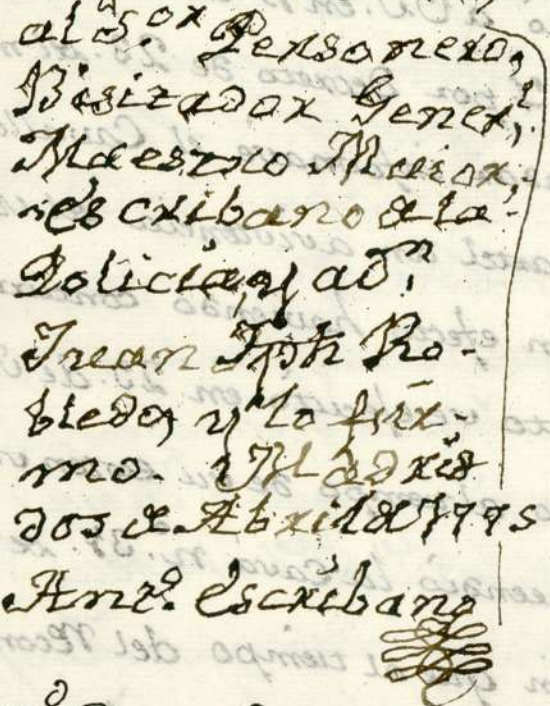 al S.or Personero,
Visitador Gener.l,
Maestro Maior,
escribano de la
Policia, y a D.n
Juan Jph Ro-
bledo, y lo fir-
mo. Madrid
dos de Abril de 1775
Ant.o escribano